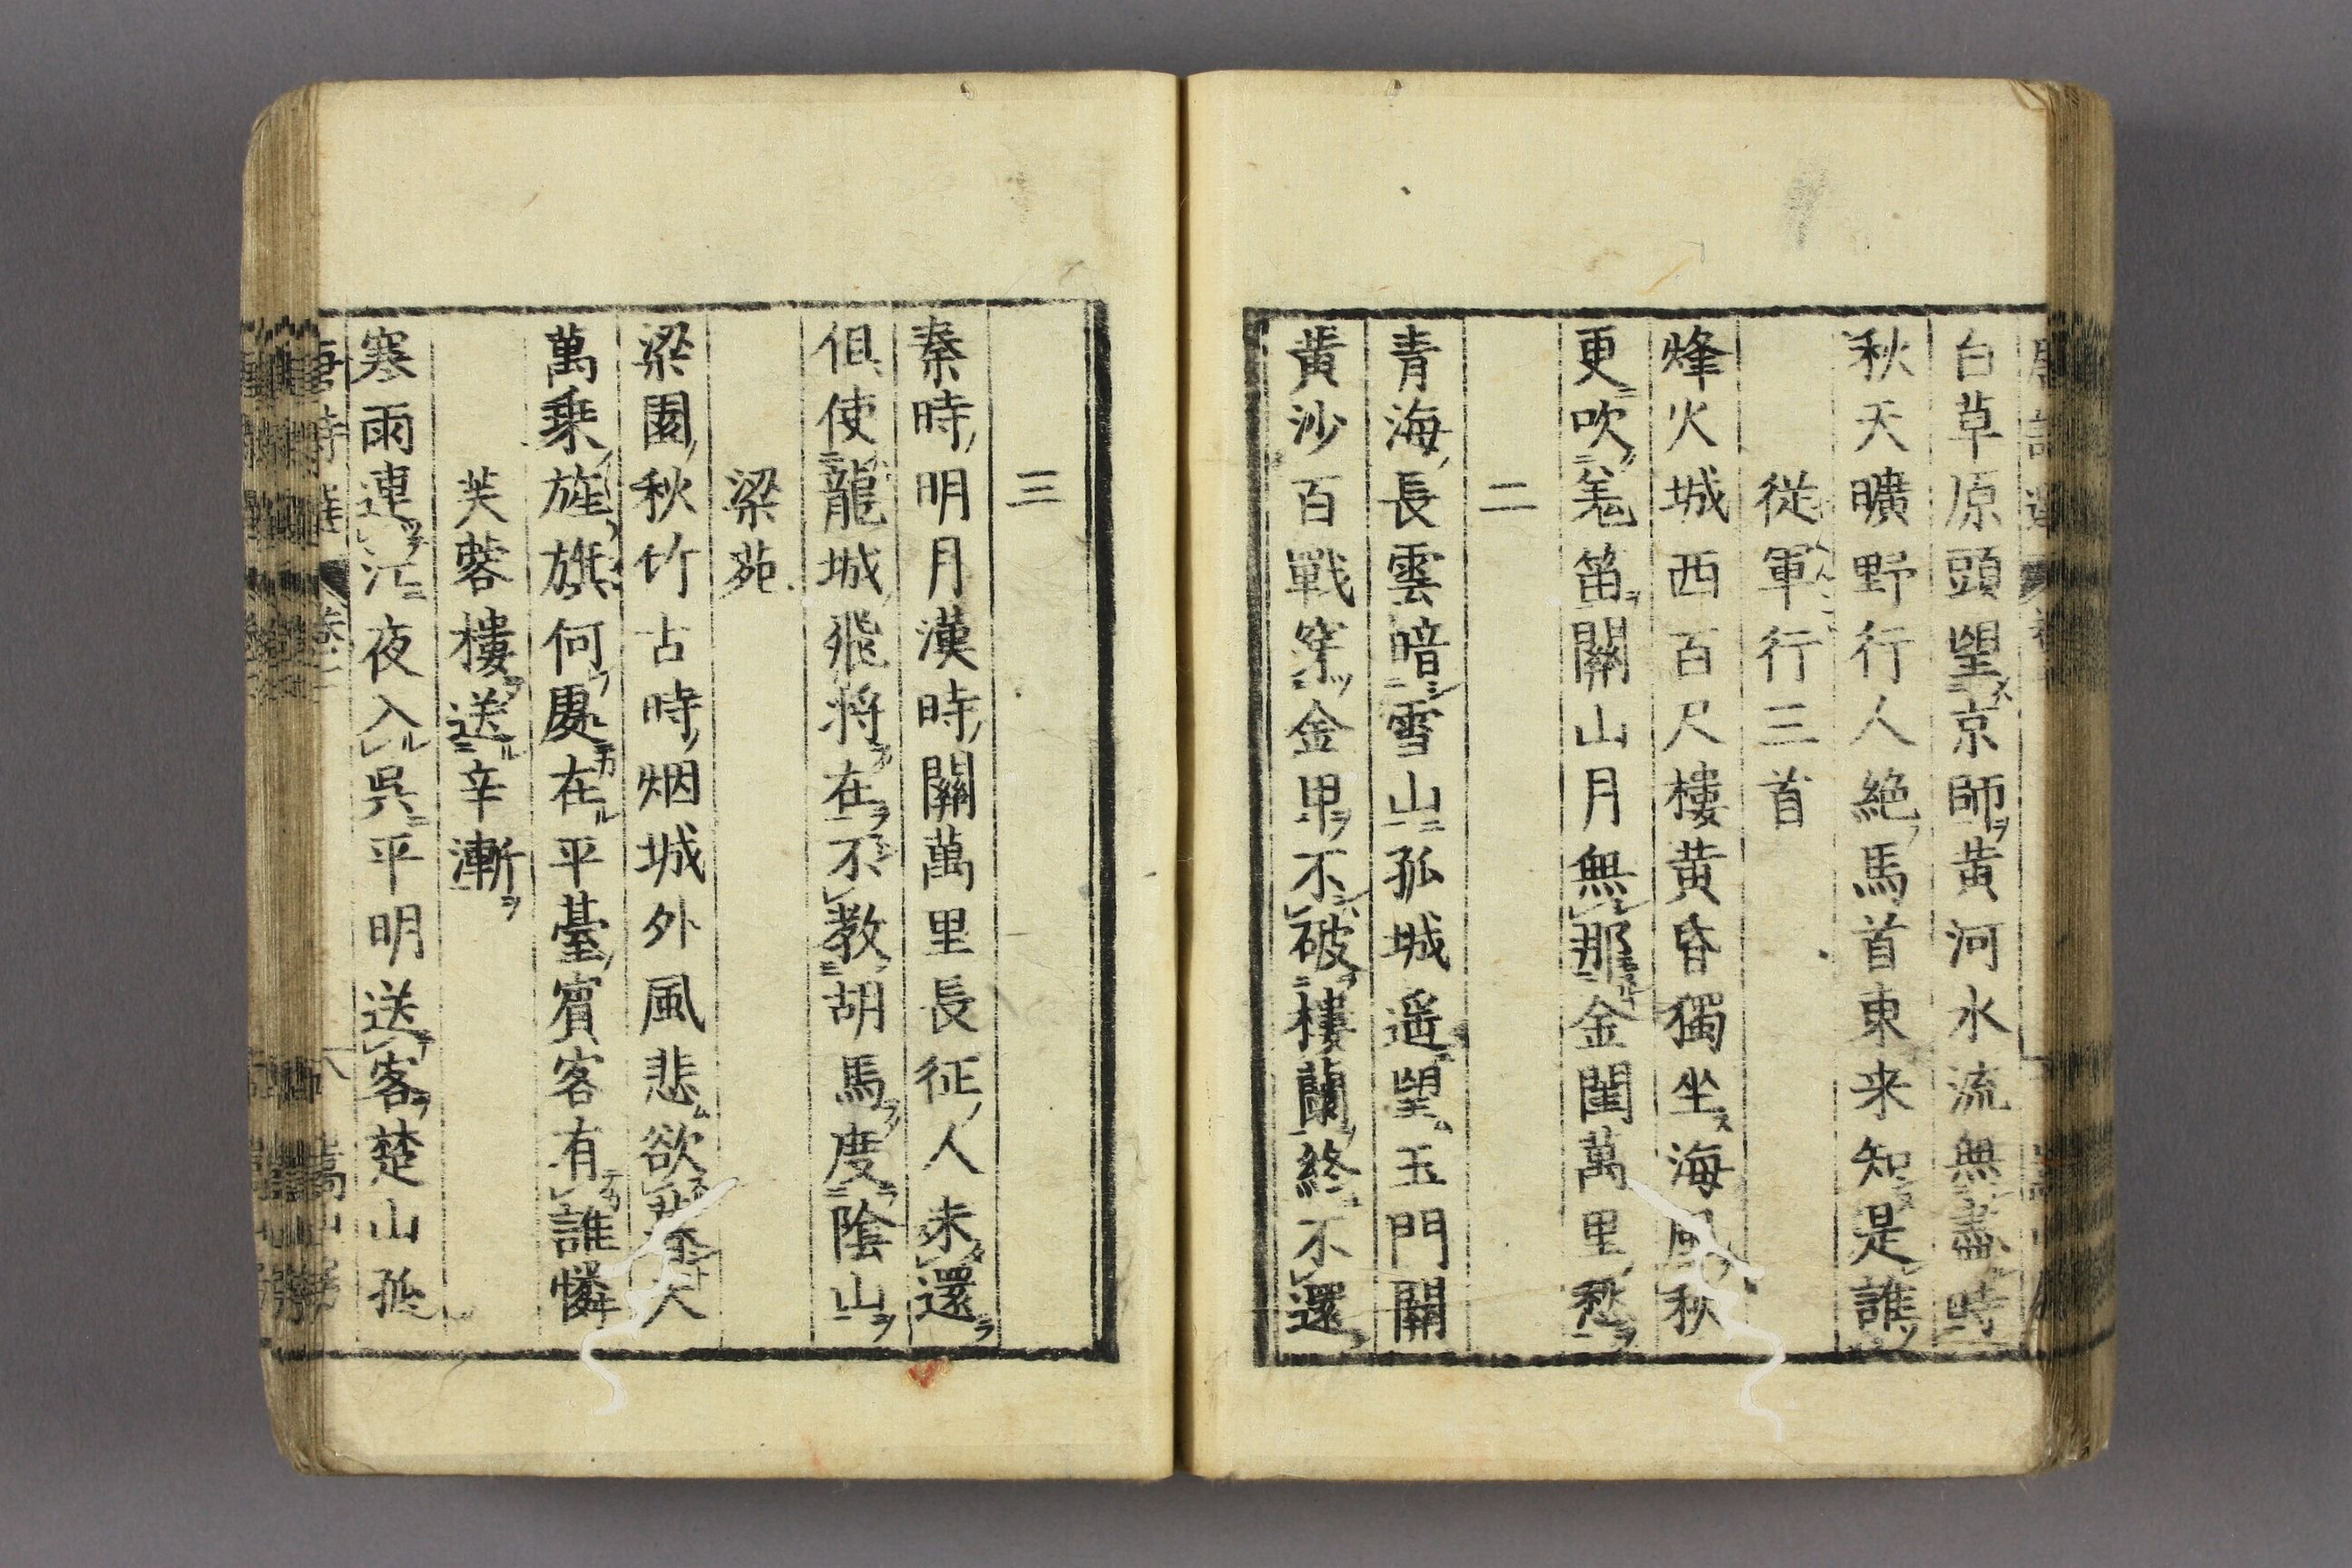 白草原頭望京師黄河水流無盡時
秋天曠野行人絶馬首東来知是誰
從軍行三首
烽火城西百尺樓黄昏獨坐海風秋
更吹羌笛關山月無那金閨萬里愁
二
青海長雲暗雪山孤城遥望玉門關
黄沙百戰穿金甲不破樓蘭終不還
三
秦時明月漢時關萬里長征人未還
但使龍城飛將在不教胡馬度陰山
梁苑
梁園秋竹古時烟城外風悲欲暮天
萬乗旌旗何處在平臺賓客有誰憐
芙蓉樓送辛漸
寒雨連江夜入呉平明送客楚山孤